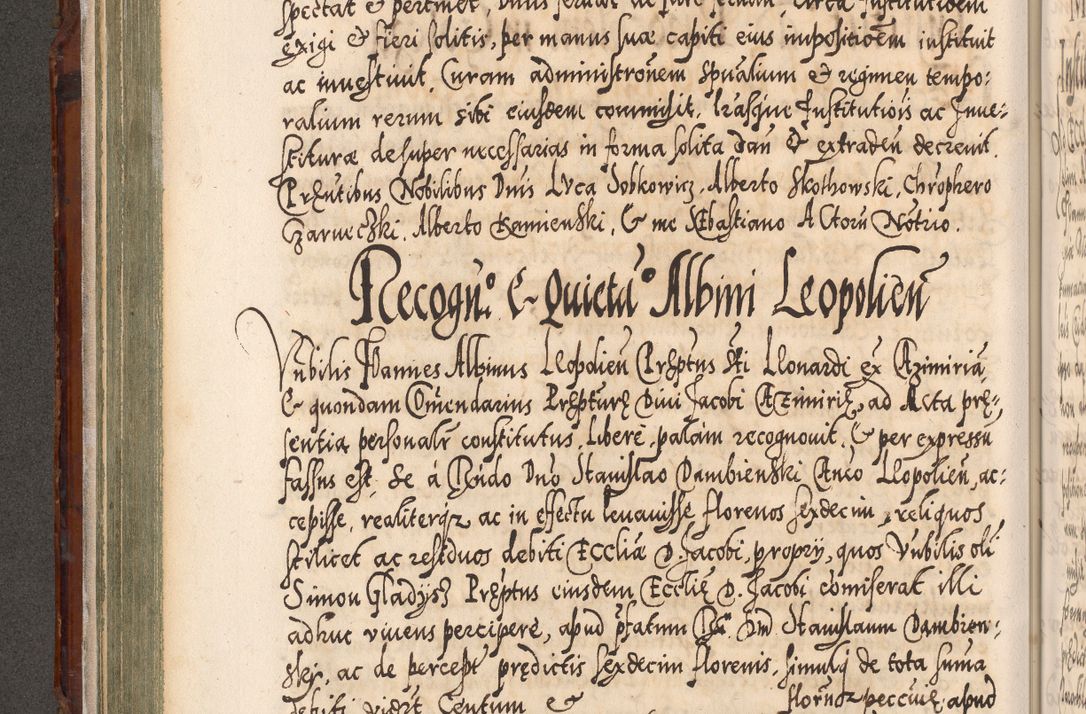 spectat & pertinet, Dnus servat de jure servan. Circa Institutioem
exigi & fieri solitis, per manus suæ capiti eius impositioem instituit
ac investivit, Curam administronem spualium & regimen tempo:
ralium rerum sibi eiusdem commisit, lrasque Institutiois ac Inve:
stituræ desuper necessarias in forma solita dan & extraden decrevit.
Prentibus Nobilibus Dnis Luca Dobkowicz, Alberto Skothowski, Chrophero
Czarneczki, Alberto Kamienski, & me Sebastiano Actoru Notrio.
Recogno & Quietao Albini Leopolien
Vnbilis Joannes Albinus Leopolien Preptus Sti Leonardi ex Cazimiria,
& quondam Comendarius Prepture Divi Jacobi Cazimirie, ad Acta pre:
sentia personalr constitutus, Libere, palam recognovit, & per expressu
fassus est, Se à Rndo Dno Stanislao Dambienski Canco Leopolien, ac:
cepisse, realiterqz ac in effectu levavisse florenos sexdecim, reliquos
scilicet ac residuos debiti Eccliæ D. Jacobi, proprij, quos Vnbilis oli
Simon Gladysz Preptus eiusdem Ecclie D. Jacobi comiserat illi
adhuc vivens percipere, apud pfatum Rdu Dm Stanislaum Dambien:
ski, ac de percept predictis sexdecim florenis, simulq de tota suma
debiti videlt Centum & florenorz peccuie, apud